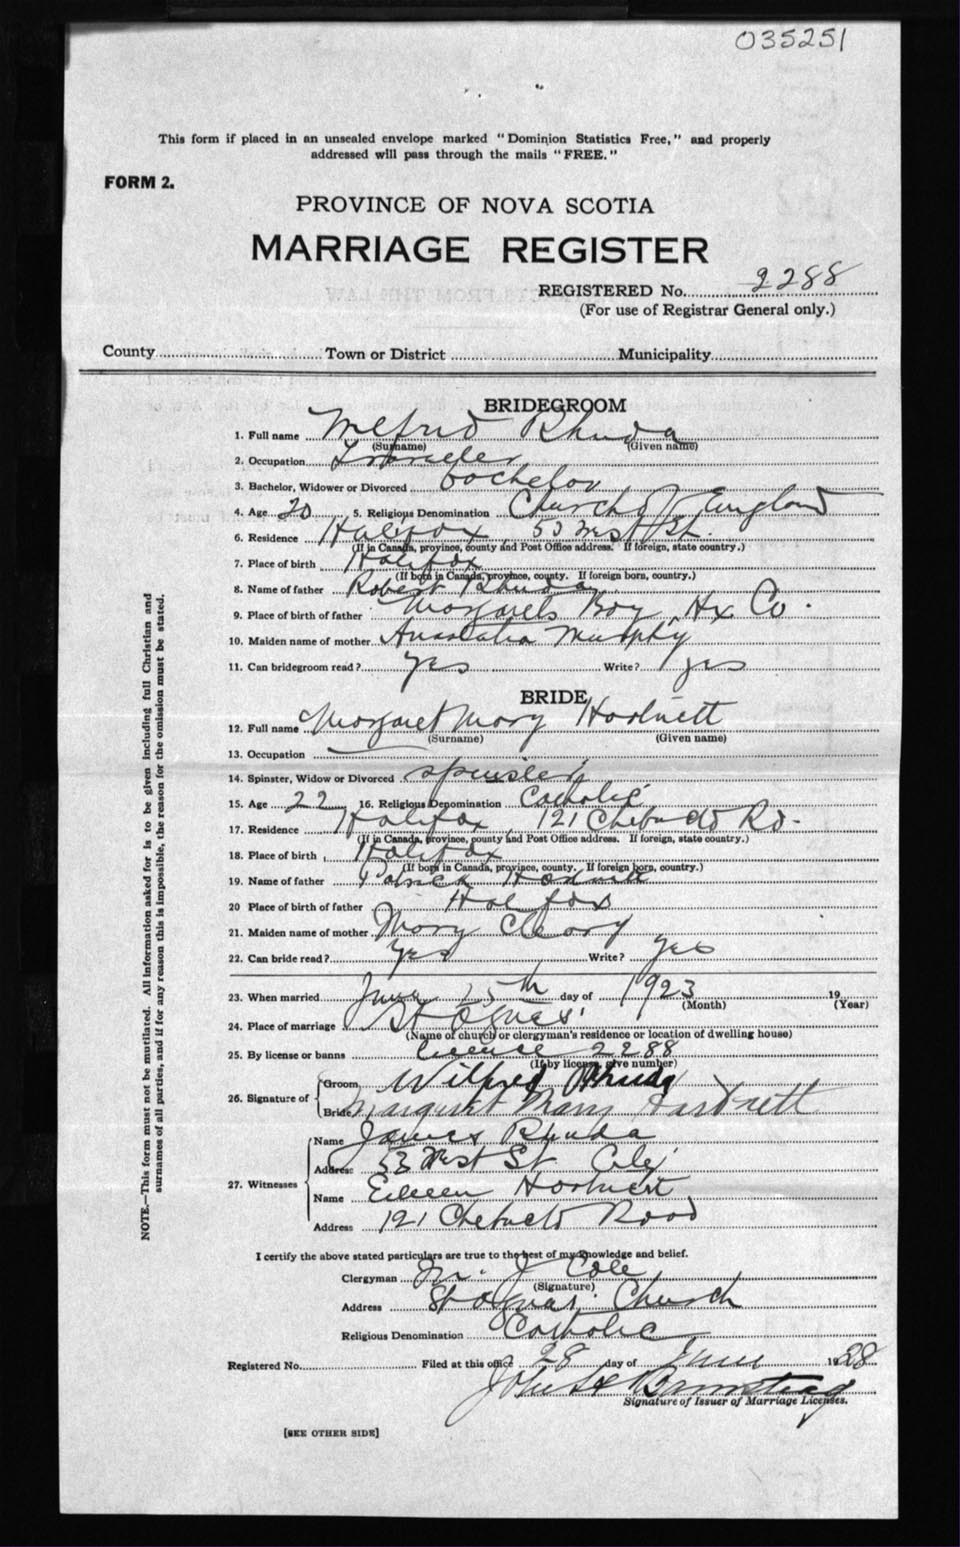 035251
This form if placed in an unsealed envelope marked "Dominion Statistics Free," and properly
addressed will pass through the mails "FREE."
FORM 2.
PROVINCE OF NOVA SCOTIA
MARRIAGE REGISTER
REGISTERED No. 2288
(For use of Registrar General only.)
County Town or District Municipality
BRIDEGROOM
1. Full name Wilfrid Rhuda
(Surname) (Given name)
2. Occupation
3. Bachelor, Widower or Divorced bachelor
4. Age 20 5. Religious Denomination Church of England
6. Residence Halifax, 53 West St.
(If in Canada, province, county and Post Office address. If foreign, state country.)
7. Place of birth Halifax
(If born in Canada, province, county. If foreign born, country.)
8. Name of father Robert Rhuda
9. Place of birth of father Margarets Bay, Hx Co.
10. Maiden name of mother Murphy
11. Can bridegroom read? yes Write? yes
BRIDE
12. Full name Margaret Mary Hartnett
(Surname) (Given name)
13. Occupation
14. Spinster, Widow or Divorced spinster
15. Age 22 16. Religious Denomination Catholic
17. Residence Halifax, 121 Chebucto Rd.
(If in Canada, province, county and Post Office address. If foreign, state country.)
18. Place of birth Halifax
(If born in Canada, province, county. If foreign born, country.)
19. Name of father Patrick Hartnett
20 Place of birth of father Halifax
21. Maiden name of mother Mary Cleary
22. Can bride read? Yes Write? yes
23. When married June 25th day of 1923 19
(Month) (Year)
24. Place of marriage St Agnes'
(Name of church or clergyman's residence or location of dwelling house)
25. By license or banns licence 2288
(If by license, give number)
26. Signature of Groom Wilfred Rhuda
Bride Margaret Mary Hartnett
27. Witnesses
Name James Rhuda
Address 53 West St City
Name Eileen Hartnett
Address 121 Chebucto Road
I certify the above stated particulars are true to the best of my knowledge and belief.
Clergyman J Cole
(Signature)
Address St Agnes' Church
Religious Denomination Catholic
Registered No. Filed at this office 28 day of June 19
Signature of Issuer of Marriage Licenses.
[SEE OTHER SIDE]
NOTE.—This form must not be mutilated. All information asked for is to be given including full Christian and
surnames of all parties, and if for any reason this is impossible, the reason for the omission must be stated.